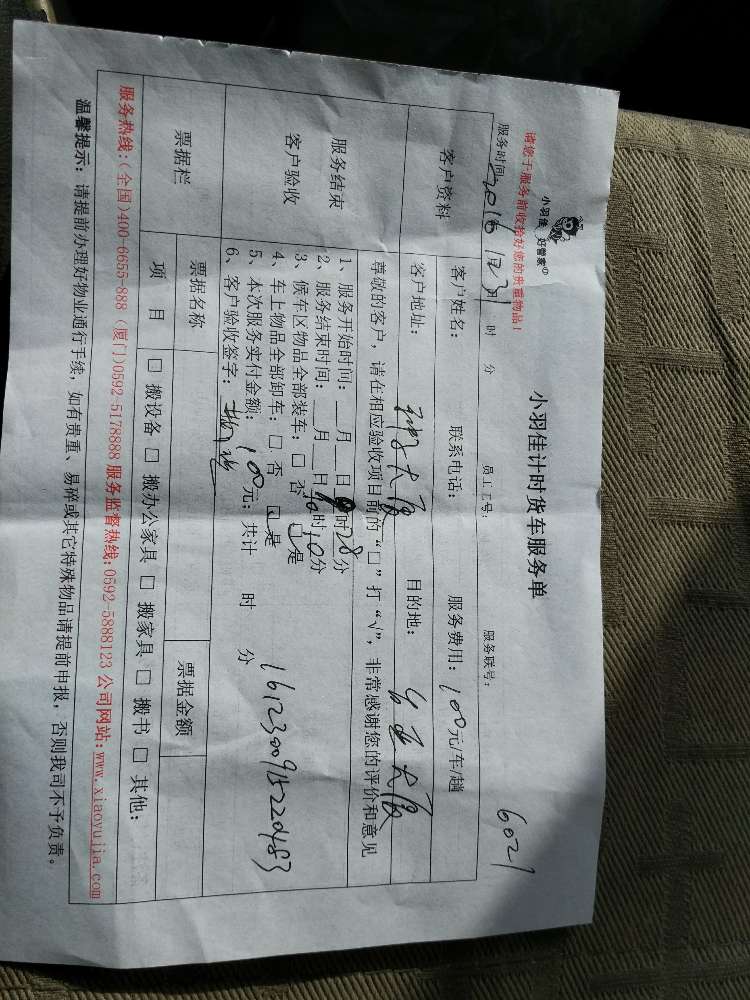 小羽佳 好管家
请您于服务前收拾好您的贵重物品！
小羽佳计时货车服务单
6021
服务时间：2016 12 31 时 分 员工工号： 服务联号：
客户资料
客户姓名： 联系电话： 服务费用：100元/车/趟
客户地址： 大厦 目的地： 大厦
服务结束
客户验收
尊敬的客户，请在相应验收项目前的“□”打“√”，非常感谢您的评价和意见
1、服务开始时间：__月__日 时28分
2、服务结束时间：__月__日10时10分
3、候车区物品全部装车：□ 否 □ 是
4、车上物品全部卸车：□ 否 □ 是
5、本次服务实付金额：100元；共计 时 分
6、客户验收签字：
1612300915220483
票据栏
票据名称 票据金额
项 目 □ 搬设备 □ 搬办公家具 □ 搬家具 □ 搬书 □ 其他：
服务热线：(全国)400-6655-888 (厦门)0592-5178888 服务监督热线：0592-5888123 公司网站：www.xiaoyujia.com
温馨提示：请提前办理好物业通行手续，如有贵重、易碎或其它特殊物品请提前申报，否则我司不予负责。